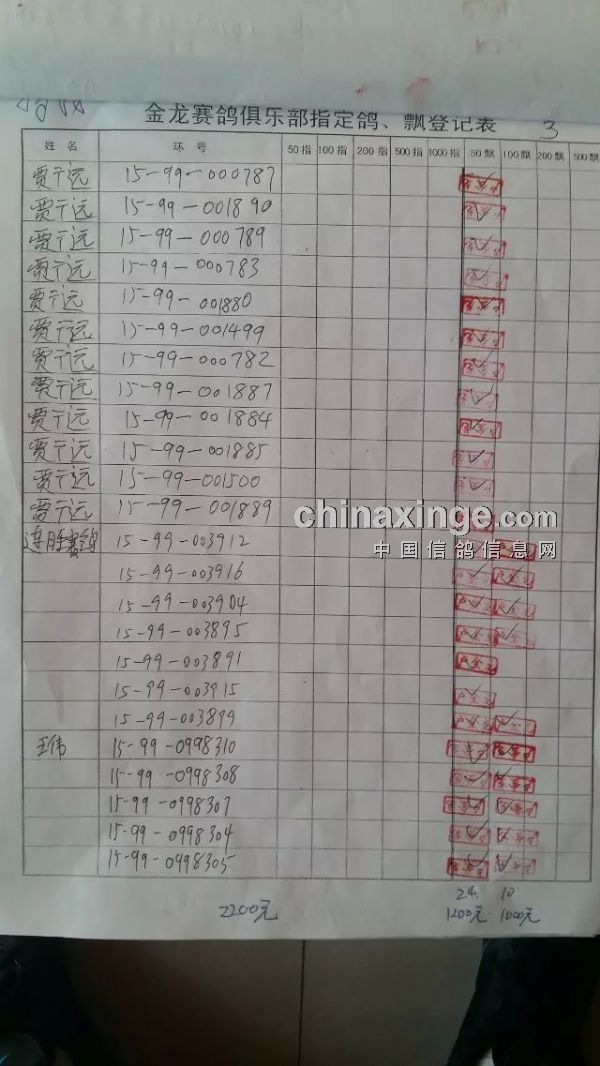 金龙赛鸽俱乐部指定鸽、飘登记表 3
姓 名 环 号 50指 100指 200指 500指 1000指 50飘 100飘 200飘 500飘
贾宁远 15-99-000787
贾宁远 15-99-001890
贾宁远 15-99-000789
贾宁远 15-99-000783
贾宁远 15-99-001880
贾宁远 15-99-001499
贾宁远 15-99-000782
贾宁远 15-99-001887
贾宁远 15-99-001884
贾宁远 15-99-001885
贾宁远 15-99-001500
贾宁远 15-99-001889
chinaxinge.com
中国信鸽信息网
15-99-003912
15-99-003916
15-99-003904
15-99-003895
15-99-003891
15-99-003915
15-99-003899
王伟 15-99-0998310
15-99-0998308
15-99-0998307
15-99-0998304
15-99-0998305
24 10
2200元 1200元 1000元